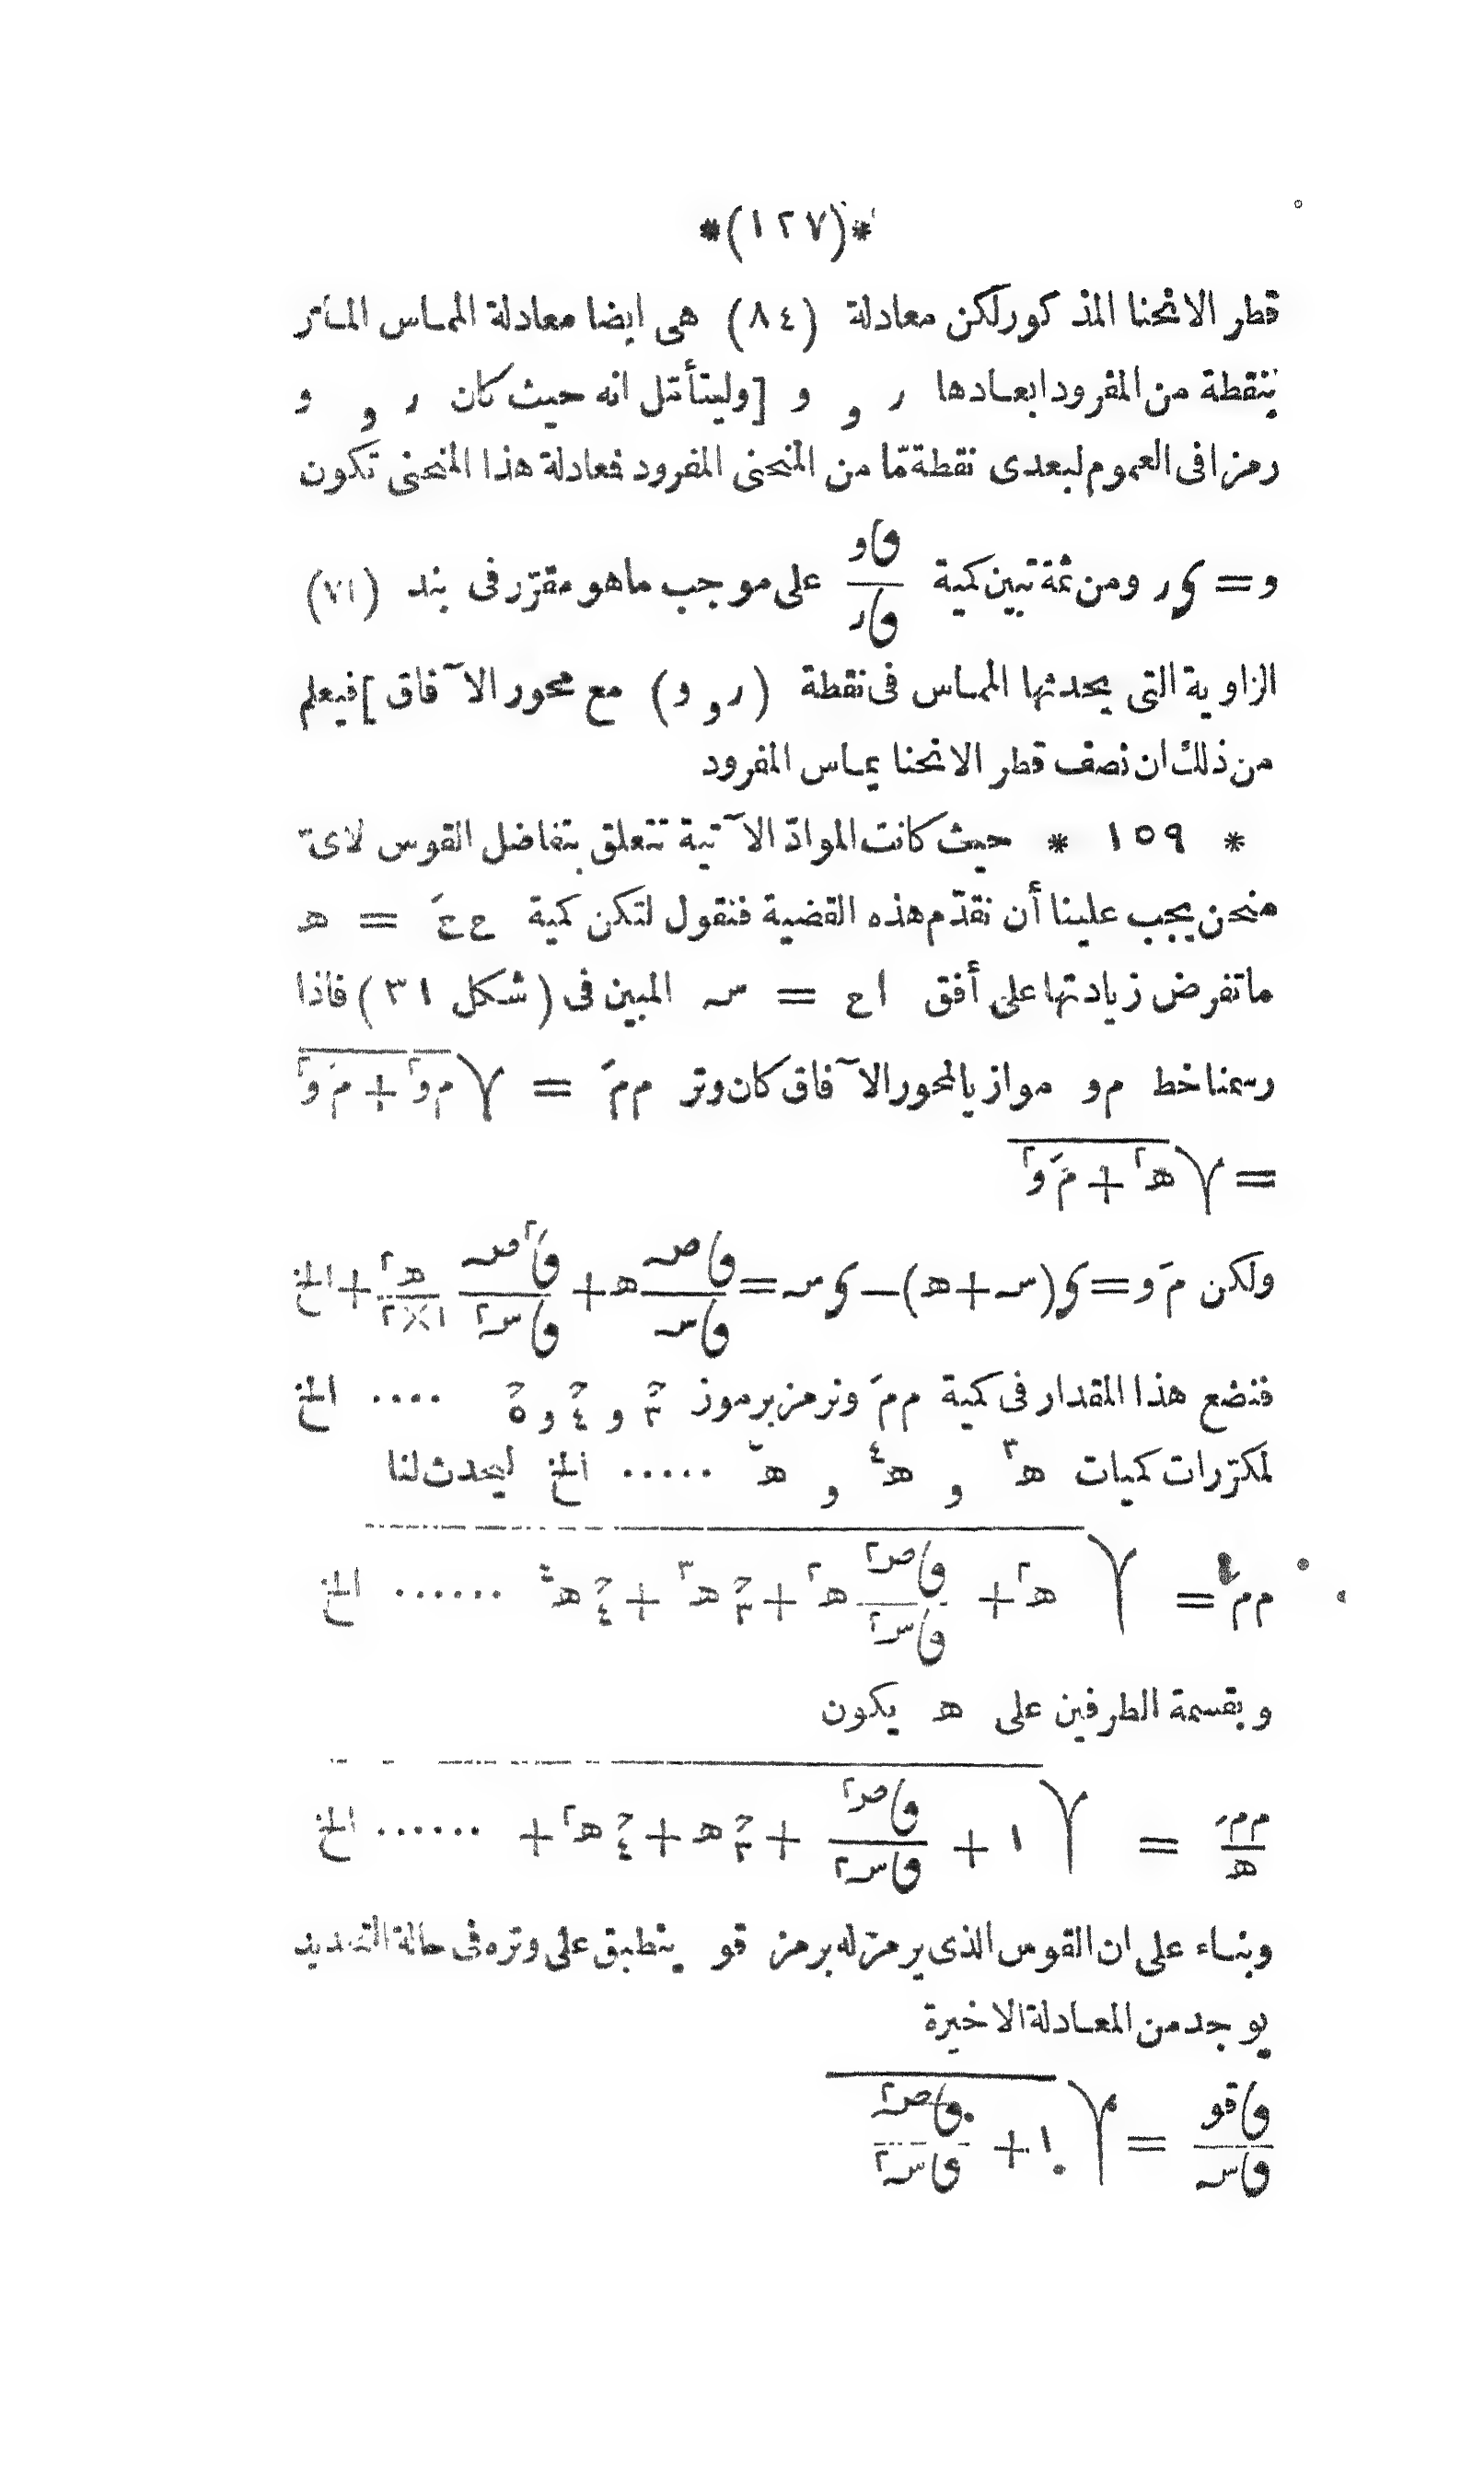 *(١٢٧)*
قطر الانحنا المذكور لكن معادلة (٨٤) هى ايضا معادلة المماس المارّ
بنقطة من المفرود ابعادها ر و و [وليتأمّل انه حيث كان ر و و
رمزا فى العموم لبعدى نقطة مّا من المنحنى المفرود فعادلة هذا المنحنى تكون
و = ﻯ ر ومن ثمة تبين كمية ﻕو/ﻕر على موجب ما هو مقرّر فى بند (٧١)
الزاوية التى يحدثها المماس فى نقطة (ر و و) مع محور الآفاق] فيعلم
من ذلك ان نصف قطر الانحنا يماس المفرود
* ١٥٩ * حيث كانت الموادّ الآتية تتعلق بتفاضل القوس لاىّ
منحن يجب علينا أن نقدّم هذه القضية فنقول لتكن كمية ع عَ = ھ
ما تفرض زيادتها على أفق اع = سہ المبين فى (شكل ٣١) فاذا
رسمنا خط م و موازيا لمحور الآفاق كان وتر م مَ = √(م و٢ + مَ و٢)
= √(ھ٢ + مَ و٢)
ولكن مَ و = ﻯ(سہ + ھ) — ﻯ سہ = ﻕصہ/ﻕسہ ھ + ﻕ٢صہ/ﻕسہ٢ ھ٢/١×٢ + الخ
فنضع هذا المقدار فى كمية م مَ ونرمز برموز ح٣ و ح٤ و ح٥ .... الخ
لمكرّرات كميات ھ٣ و ھ٤ و ھ٥ ..... الخ ليحدث لنا
م مَ = √(ھ٢ + ﻕصہ٢/ﻕسہ٢ ھ٢ + ح٣ ھ٣ + ح٤ ھ٤ ...... الخ)
وبقسمة الطرفين على ھ يكون
م مَ/ھ = √(١ + ﻕصہ٢/ﻕسہ٢ + ح٣ ھ + ح٤ ھ٢ + ...... الخ)
وبناء على ان القوس الذى يرمز له برمز قو ينطبق على وتره فى حالة التحديد
يوجد من المعادلة الاخيرة
ﻕقو/ﻕسہ = √(١ + ﻕصہ٢/ﻕسہ٢)